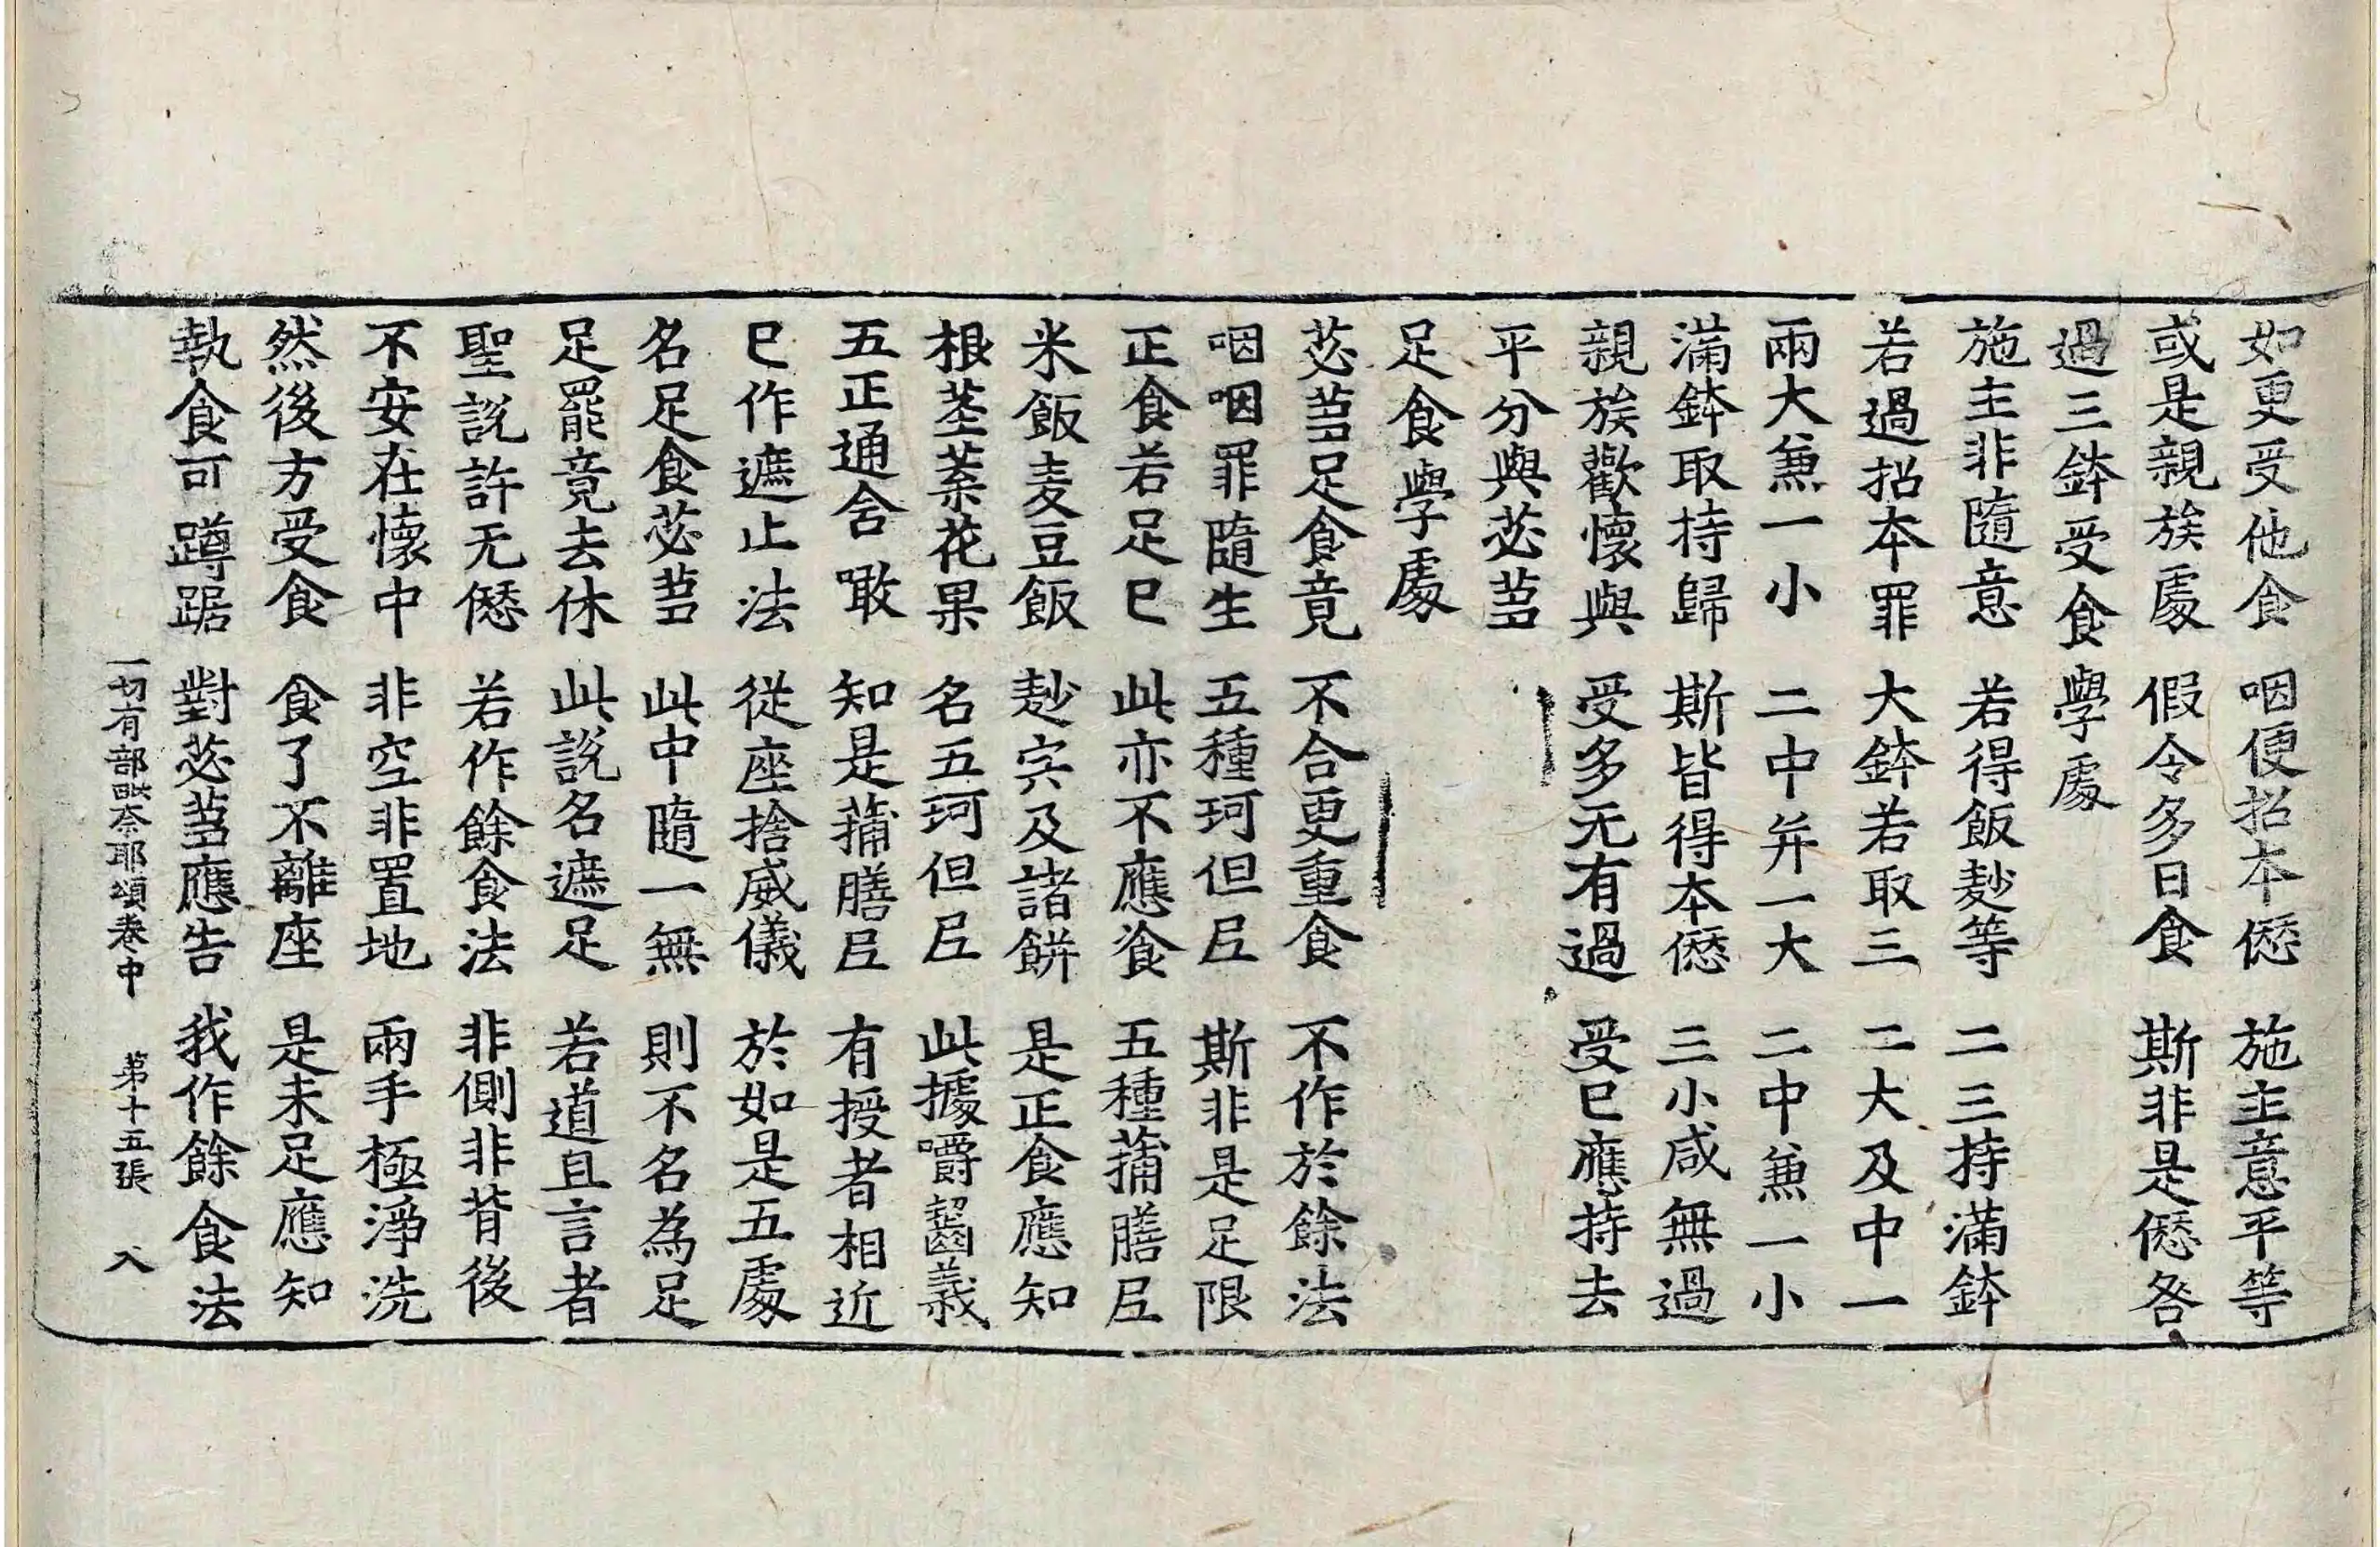 如更受他食　咽便招本𠎝　施主意平等
或是親族處　假令多日食　斯非是𠎝咎
過三鉢受食學處
施主非隨意　若得飯麨等　二三持滿鉢
若過招本罪　大鉢若取三　二大及中一
兩大兼一小　二中并一大　二中兼一小
滿鉢取持歸　斯皆得本𠎝　三小咸無過
親族歡懷與　受多无有過　受已應持去
平分與苾蒭
足食學處
苾蒭足食竟　不合更重食　不作於餘法
咽咽罪隨生　五種珂但尼　斯非是足限
正食若足已　此亦不應飡　五種蒱膳尼
米飯麦豆飯　麨宍及諸餅　是正食應知
根莖葉花果　名五珂但尼　此據嚼齧義
五正通含噉　知是蒱膳尼　有授者相近
已作遮止法　從座捨威儀　於如是五處
名足食苾蒭　此中隨一無　則不名為足
足罷竟去休　此說名遮足　若道且言者
聖說許无𠎝　若作餘食法　非側非背後
不安在懷中　非空非置地　兩手極淨洗
然後方受食　食了不離座　是未足應知
執食可蹲踞　對苾蒭應告　我作餘食法
一切有部毗奈耶頌卷中　第十五張　入